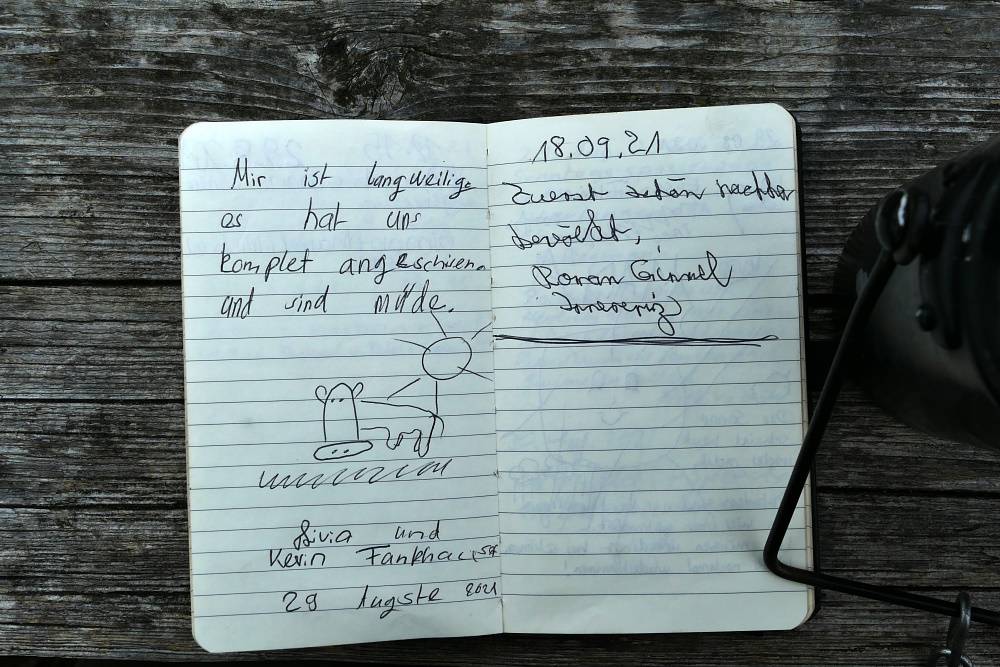 Mir ist langweilig
es hat uns
komplet angeschiren.
und sind müde.
Livia und
Kevin Fankhauser
29 Auguste 2021
18.09.21
Zuerst schön nachher
bewölkt,